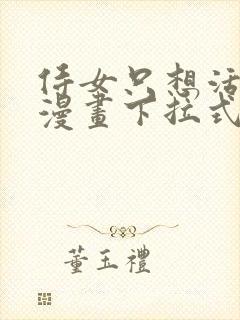 侍女只想活
漫畫下拉式
董玉禮